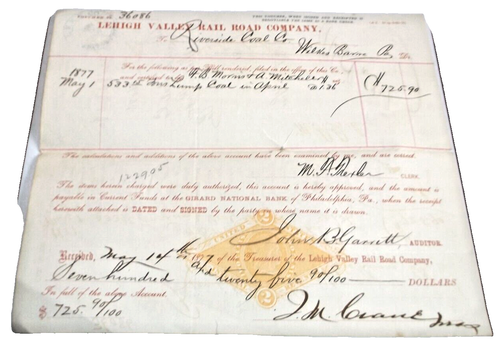 VOUCHER No. 36086
THIS VOUCHER, WHEN SIGNED AND RECEIPTED IS
LEHIGH VALLEY RAIL ROAD COMPANY,
To Riverside Coal Co
Wilkes Barre Pa, Dr.
For the following as per Bill rendered, filed in the office of this Co.
and certified by F B Morris & A Mitchell
1877
May 1 533 Tons Lump Coal in April 1.36 $725.90
The calculations and additions of the above account have been examined by me, and are correct.
122905
CLERK.
The items herein charged were duly authorized, this account is hereby approved, and the amount is
payable in Current Funds at the GIRARD NATIONAL BANK of Philadelphia, Pa., when the receipt
herewith attached is DATED and SIGNED by the party in whose name it is drawn.
John B Garrett, AUDITOR.
Received, May 14th 1877 of the Treasurer of the Lehigh Valley Rail Road Company,
Seven hundred and twenty five 90/100 DOLLARS
In full of the above Account.
$725 90/100
J. M. Crane